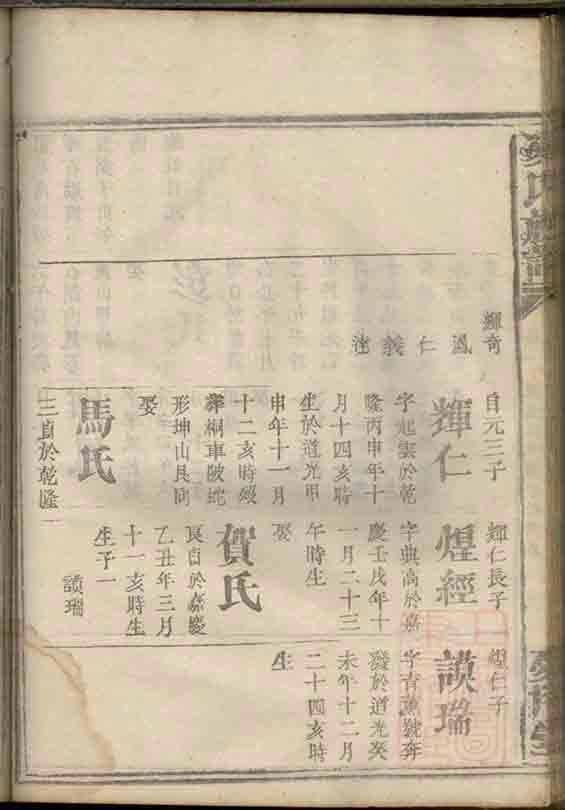 氏族譜
輝奇
鳳
仁
義
自元三子
輝仁
字起雲於乾
隆丙申年十
月十四亥時
生於道光甲
申年十一月
十二亥時歿
葬桐車陂蛇
形坤山艮向
娶
馬氏
三貞於乾隆
輝仁長子
煌經
字典高於嘉
慶壬戌年十
一月二十三
午時生
娶
賀氏
艮貞於嘉慶
乙丑年三月
十一亥時生
生子一
謨瑞
煌仁子
謨瑞
字青蕙號奔
發於道光癸
未年十二月
二十四亥時
生